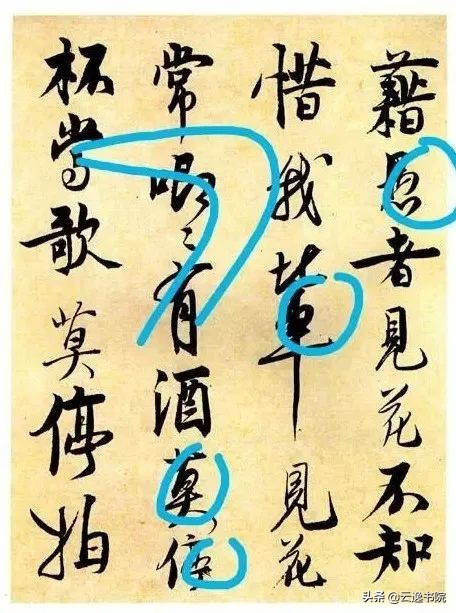 藉愚者見花不知
惜我輩見花
常有酒莫停
杯當歌莫停拍
头条 @云逸书院